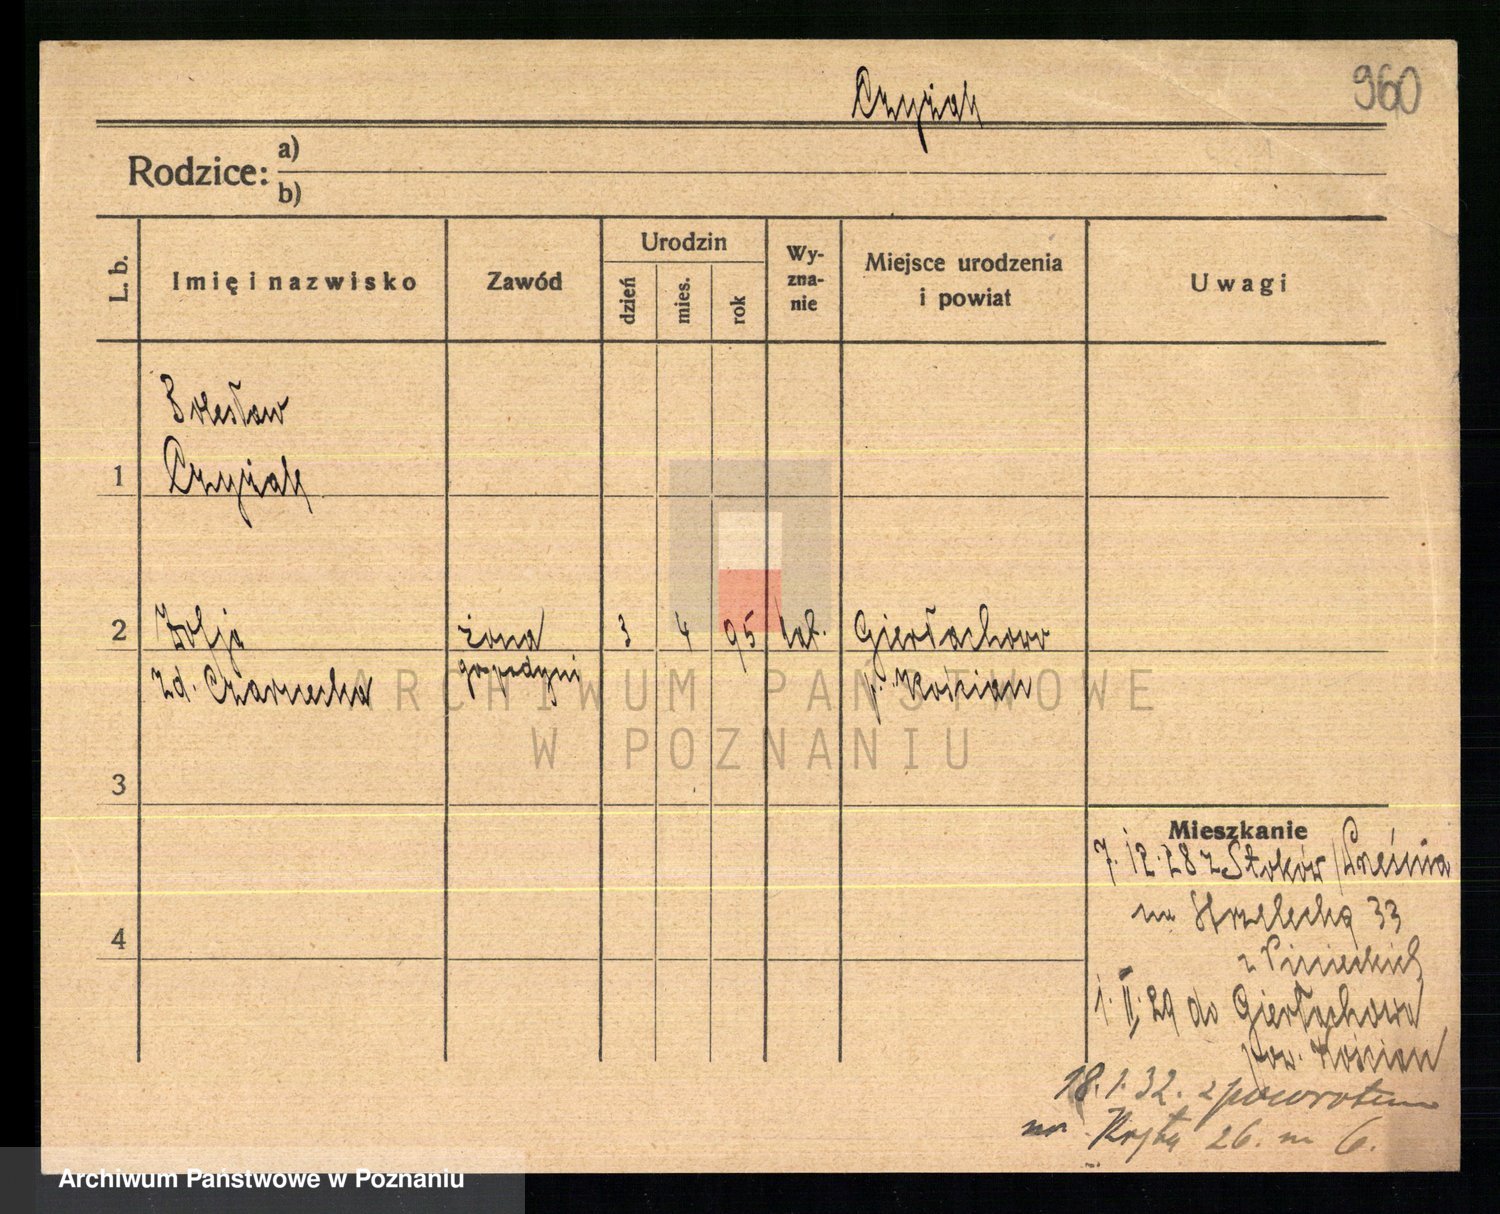 960
Czyżak
Rodzice: a)
b)
L. b.
Imię i nazwisko
Zawód
Urodzin
dzień
mies.
rok
Wy-
zna-
nie
Miejsce urodzenia
i powiat
Uwagi
Bolesław
1 Czyżak
2 Zofja żona 3 4 95 kat. Gierłachowo
zd. Czarnecka gospodyni p. Kościan
3
4
Mieszkanie
7. 12. 28 z Stoków / Leśna
na Strzelecką 33
z
1. II. 29 do Gierłachowa
pow. Kościan
18. 1. 32. z powrotem
na 26. m 6.
ARCHIWUM PAŃSTWOWE
W POZNANIU
Archiwum Państwowe w Poznaniu